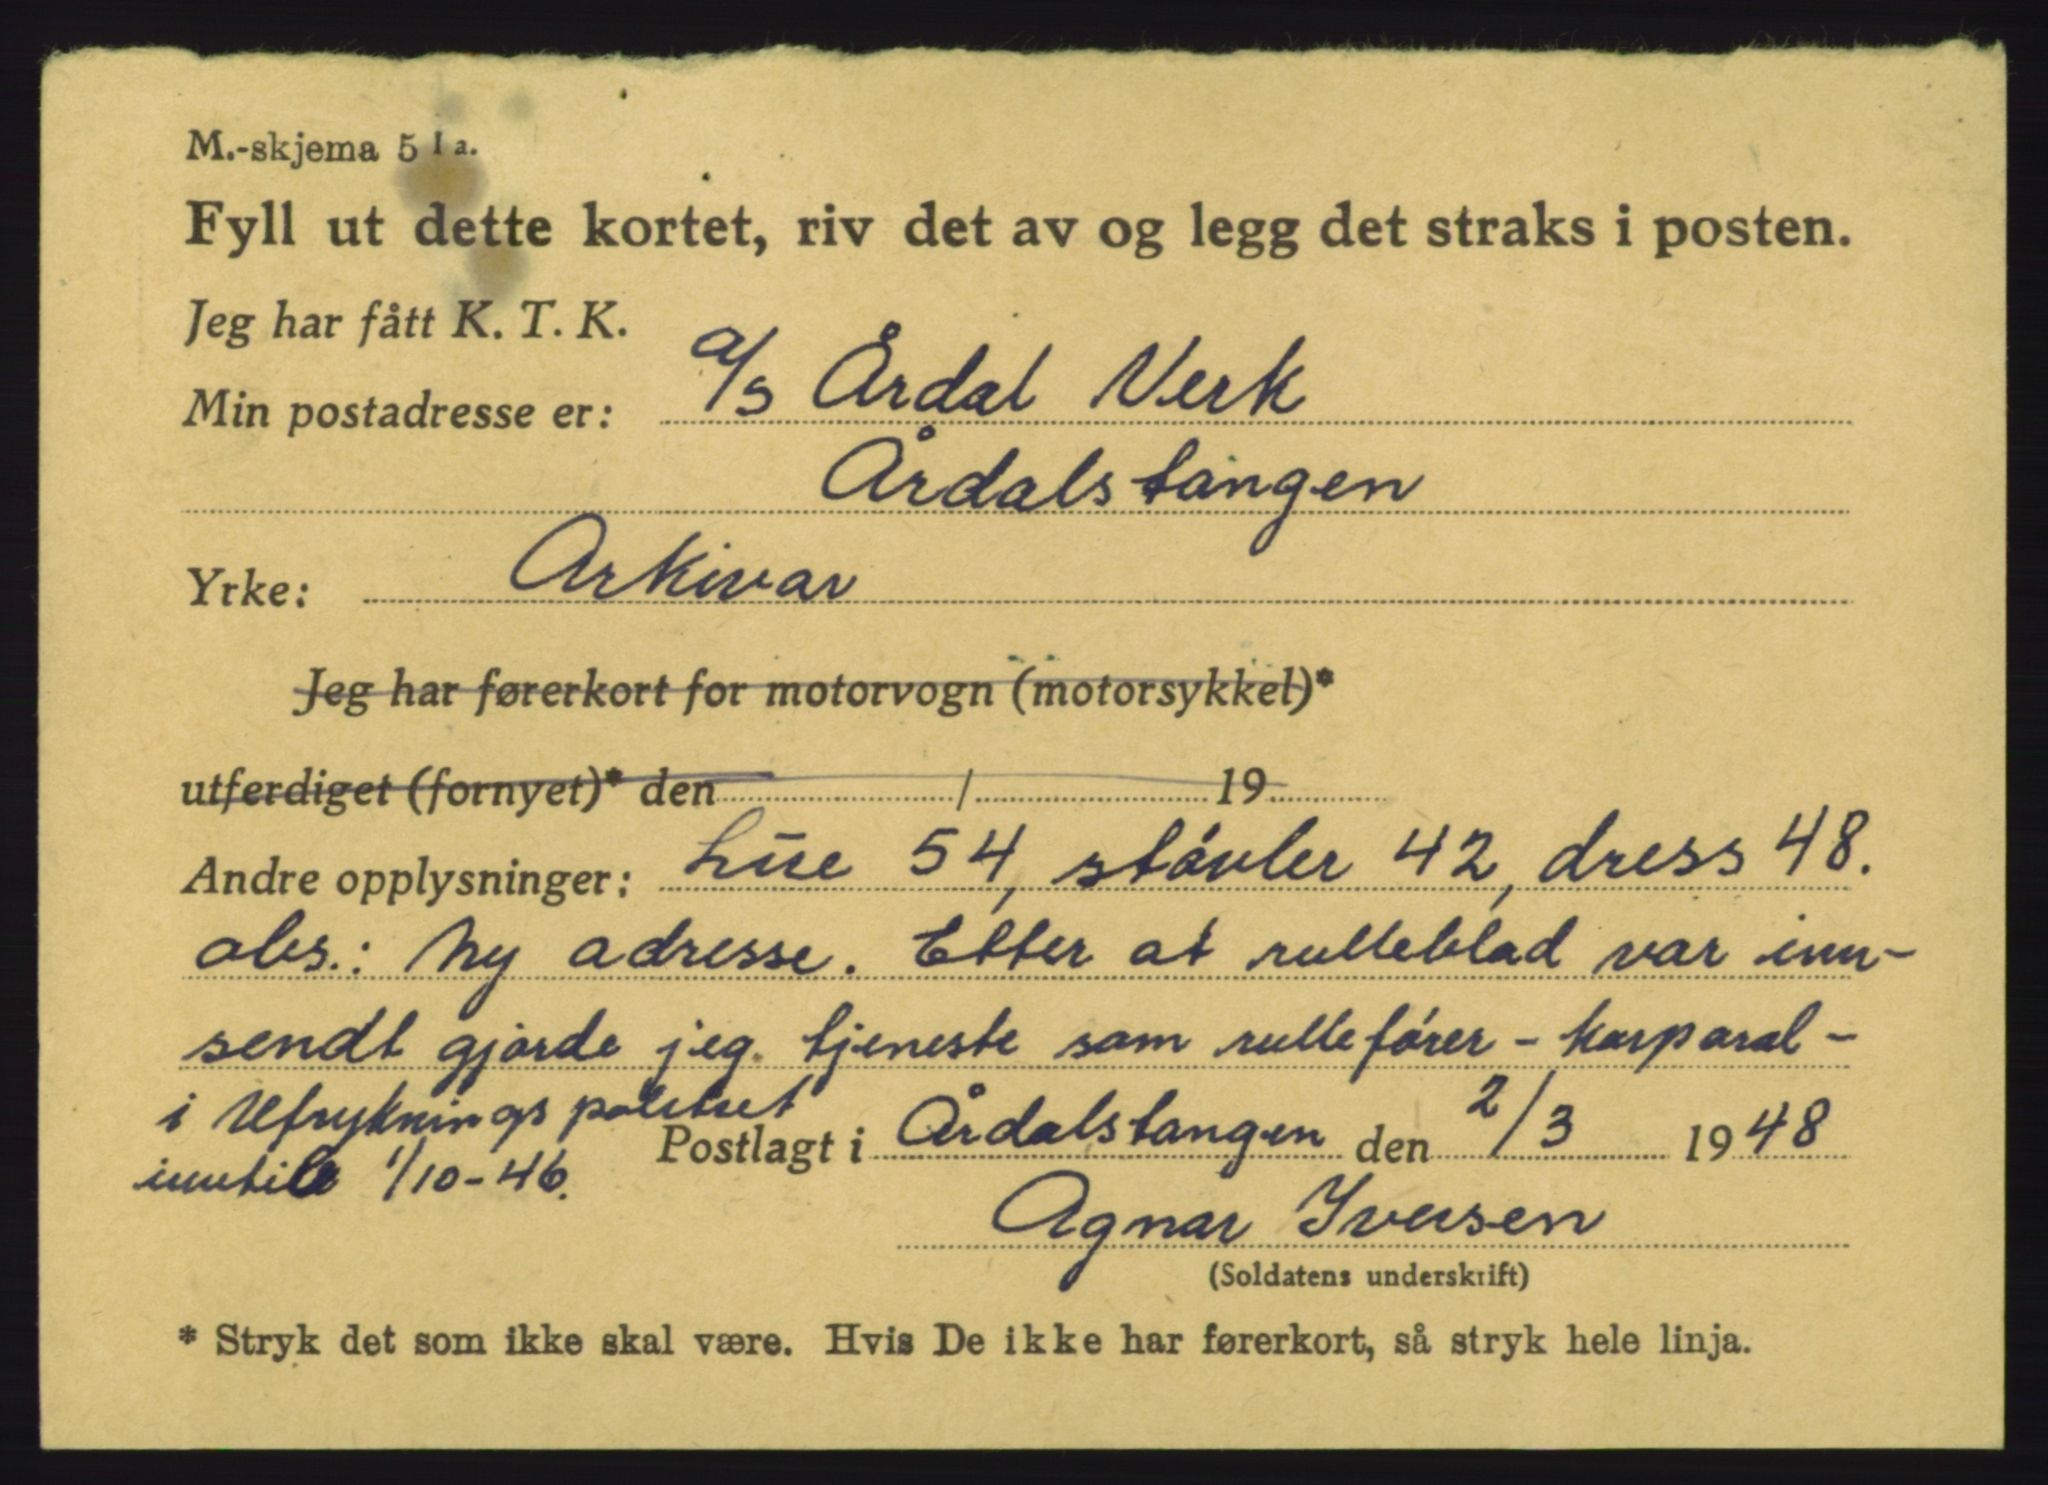 M.-skjema 5 I a.
Fyll ut dette kortet, riv det av og legg det straks i posten.
Jeg har fått K. T. K.
Min postadresse er: a/s Årdal Verk
Årdalstangen
Yrke: Arkivar
Jeg har førerkort for motorvogn (motorsykkel)*
utferdiget (fornyet)* den / 19
Andre opplysninger: Lue 54, støvler 42, dress 48.
obs.: Ny adresse. Etter at rulleblad var inn-
sendt gjorde jeg tjeneste som rullefører - korporal -
i Utrykningspolitiet
inntil 1/10-46.
Postlagt i Årdalstangen den 2/3 1948
Agnar Iversen
(Soldatens underskrift)
* Stryk det som ikke skal være. Hvis De ikke har førerkort, så stryk hele linja.